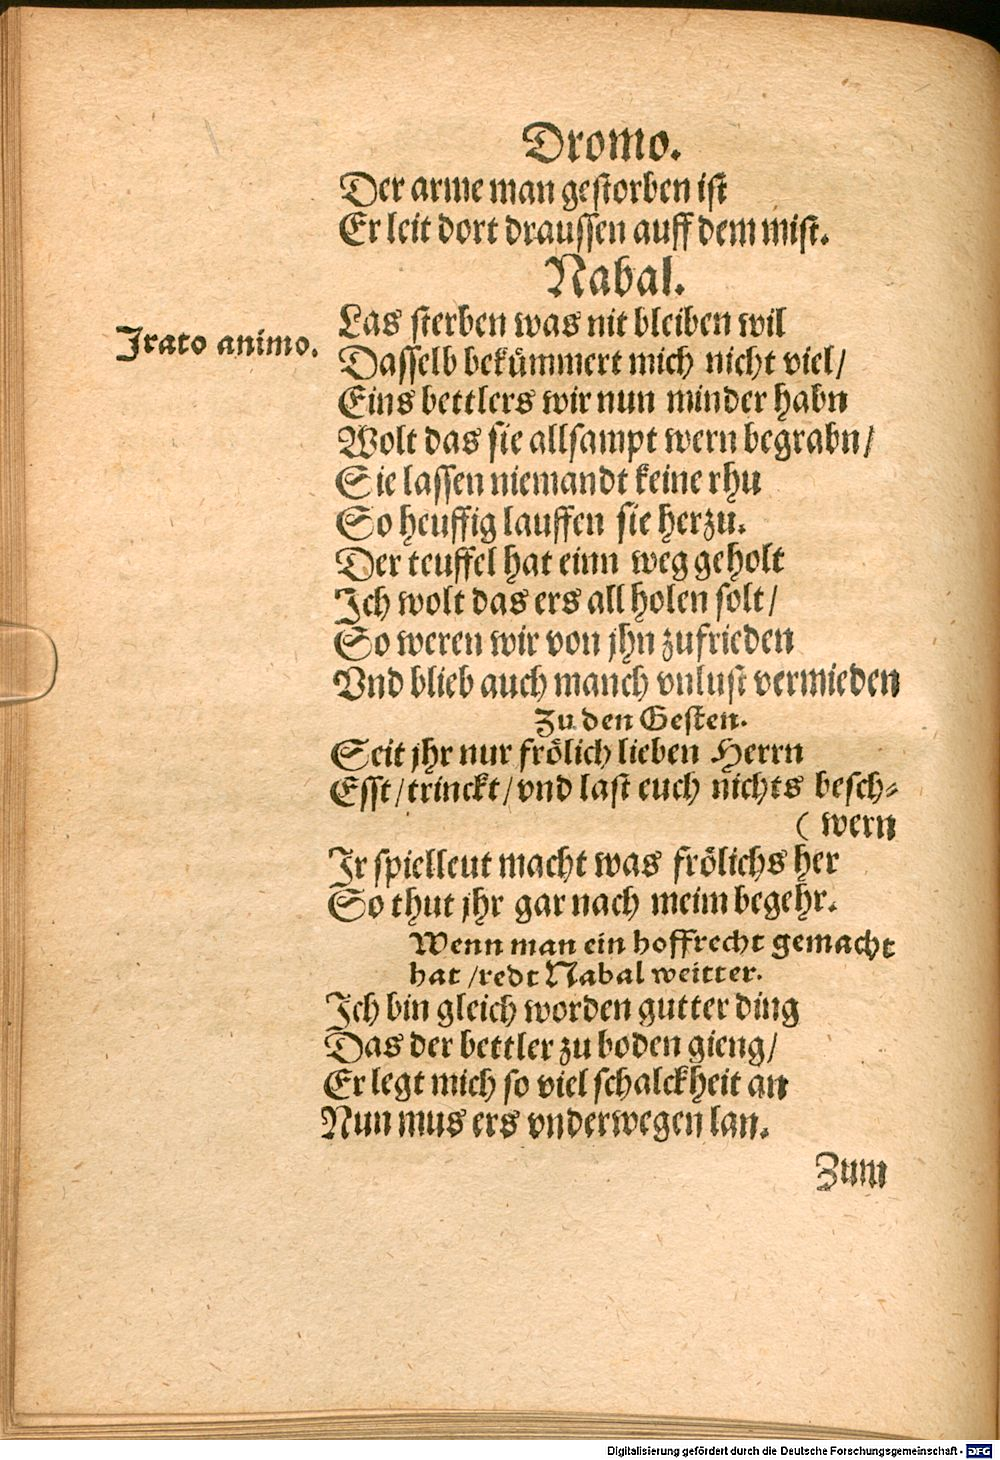 Dromo.
Der arme man gestorben ist
Er leit dort draussen auff dem mist.
Nabal.
Irato animo.
Las sterben was nit bleiben wil
Dasselb bekümmert mich nicht viel/
Eins bettlers wir nun minder habn
Wolt das sie allsampt wern begrabn/
Sie lassen niemandt keine rhu
So heuffig lauffen sie herzu.
Der teuffel hat einn weg geholt
Ich wolt das ers all holen solt/
So weren wir von jhn zufrieden
Vnd blieb auch manch vnlust vermieden
Zu den Gesten.
Seit jhr nur frölich lieben Herrn
Esst/trinckt/vnd last euch nichts besch-
(wern
Ir spielleut macht was frölichs her
So thut jhr gar nach meim begehr.
Wenn man ein hoffrecht gemacht
hat/redt Nabal weitter.
Ich bin gleich worden gutter ding
Das der bettler zu boden gieng/
Er legt mich so viel schalckheit an
Nun mus ers vnderwegen lan.
Zum
Digitalisierung gefördert durch die Deutsche Forschungsgemeinschaft - DFG